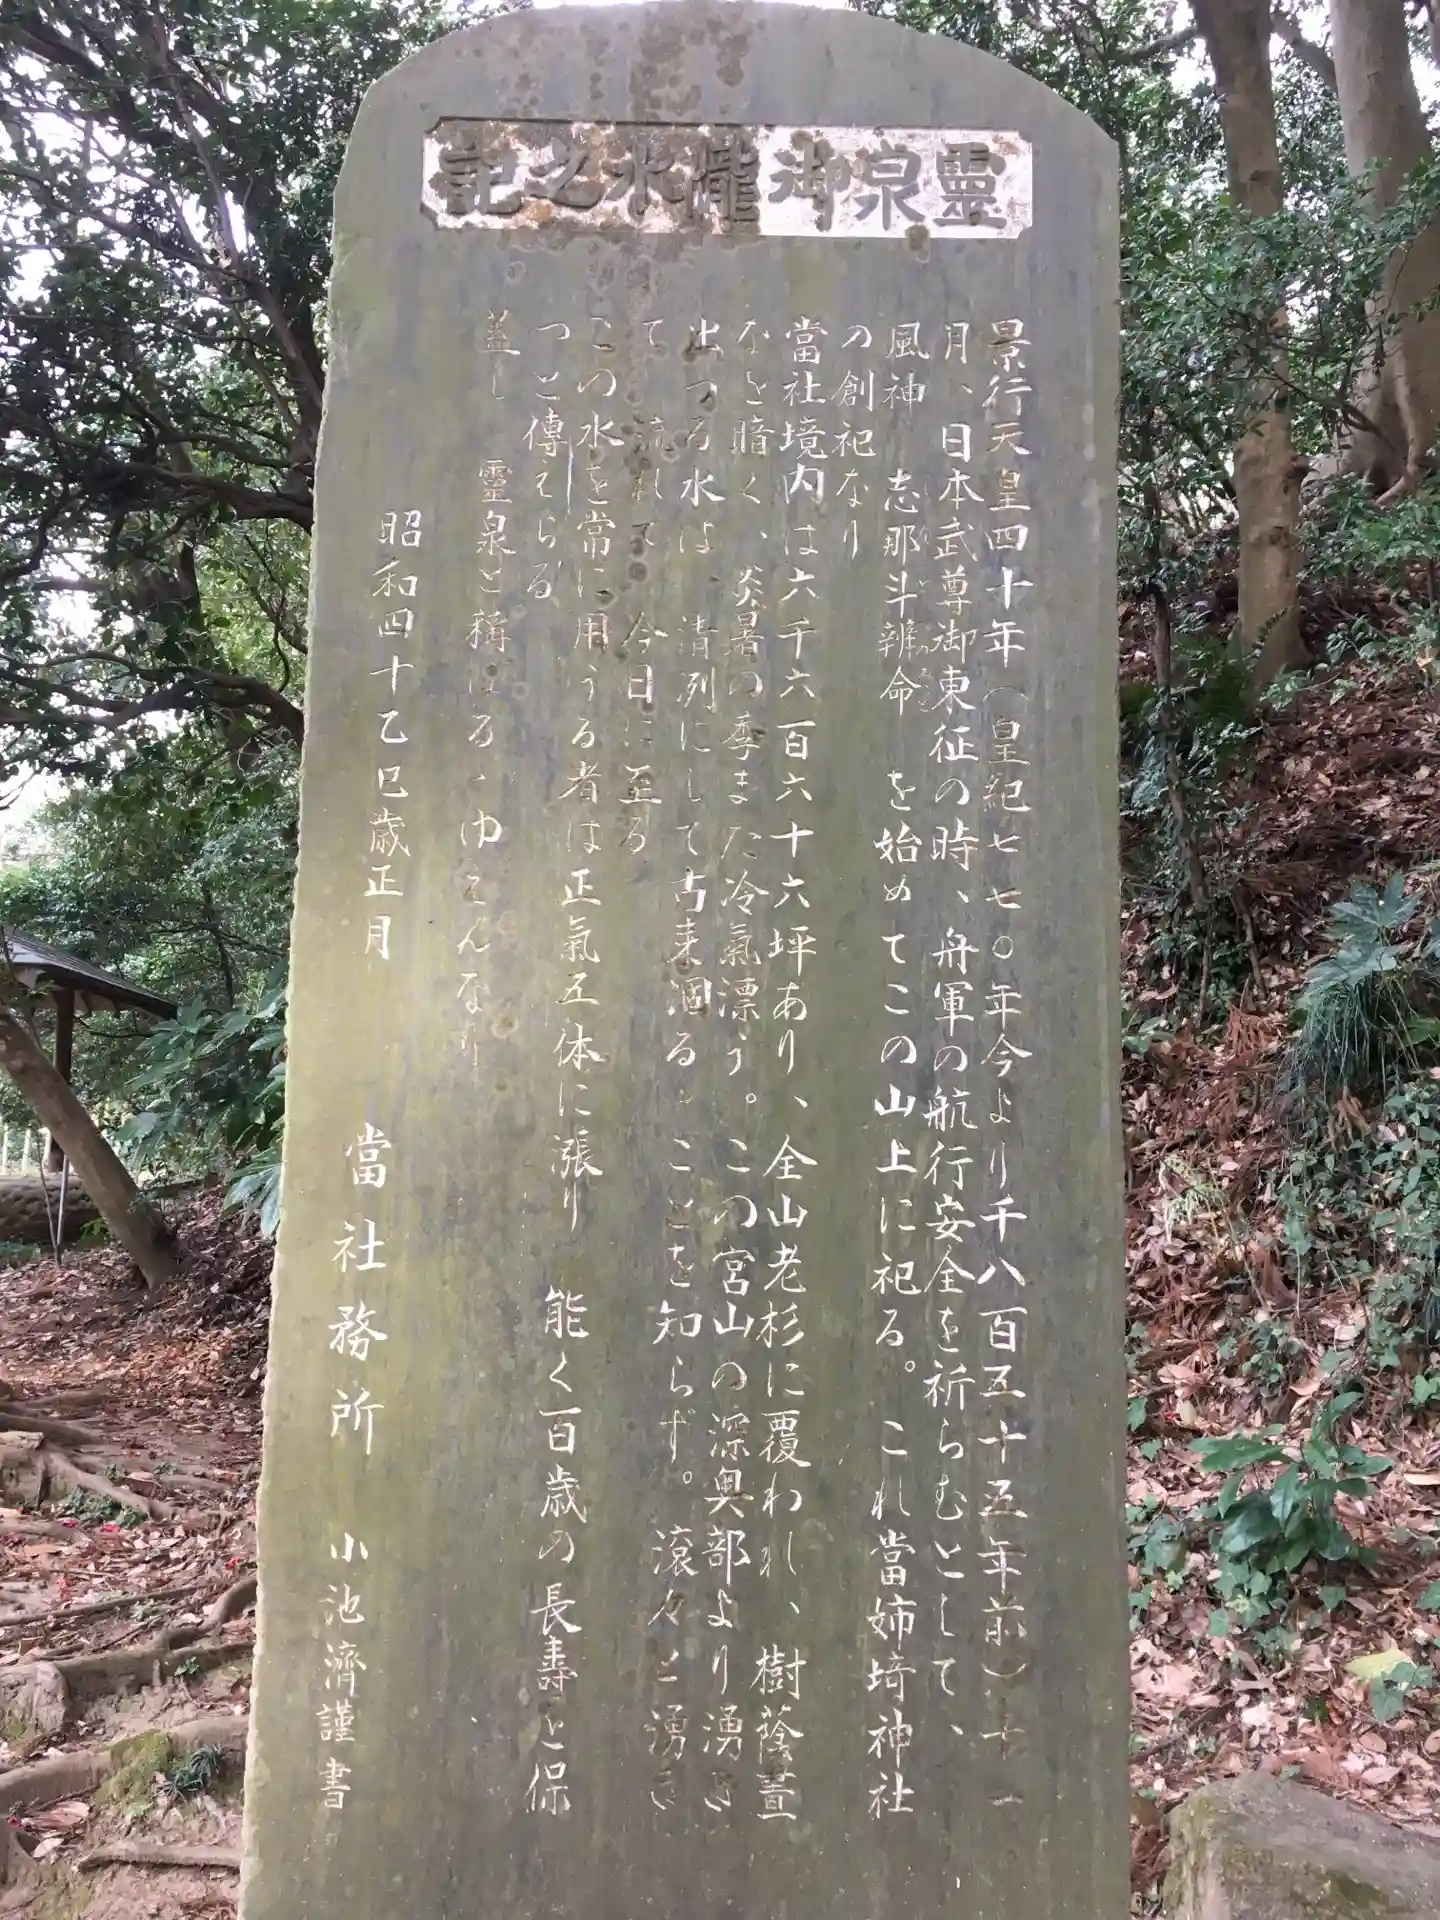 靈泉御瀧水之記
景行天皇四十年(皇紀七七〇年今より千八百五十五年前)十一
月、日本武尊御東征の時、舟軍の航行安全を祈らむとして、
風神 志那斗辨命 を始めてこの山上に祀る。これ當姉埼神社
の創祀なり
當社境内は六千六百六十六坪あり、全山老杉に覆われ、樹蔭晝
なを暗く、炎暑の季また冷氣漂う。この宮山の深奥部より湧き
出つる水は、清冽にして古来涸るゝことを知らず。滾々と湧き
て 流れて 今日に至る
この水を常に用うる者は正氣五体に漲り 能く百歳の長壽を保
つと傳えらる
蓋し 靈泉と稱はるゝゆえんなり
昭和四十乙巳歳正月 當社務所 小池濟謹書